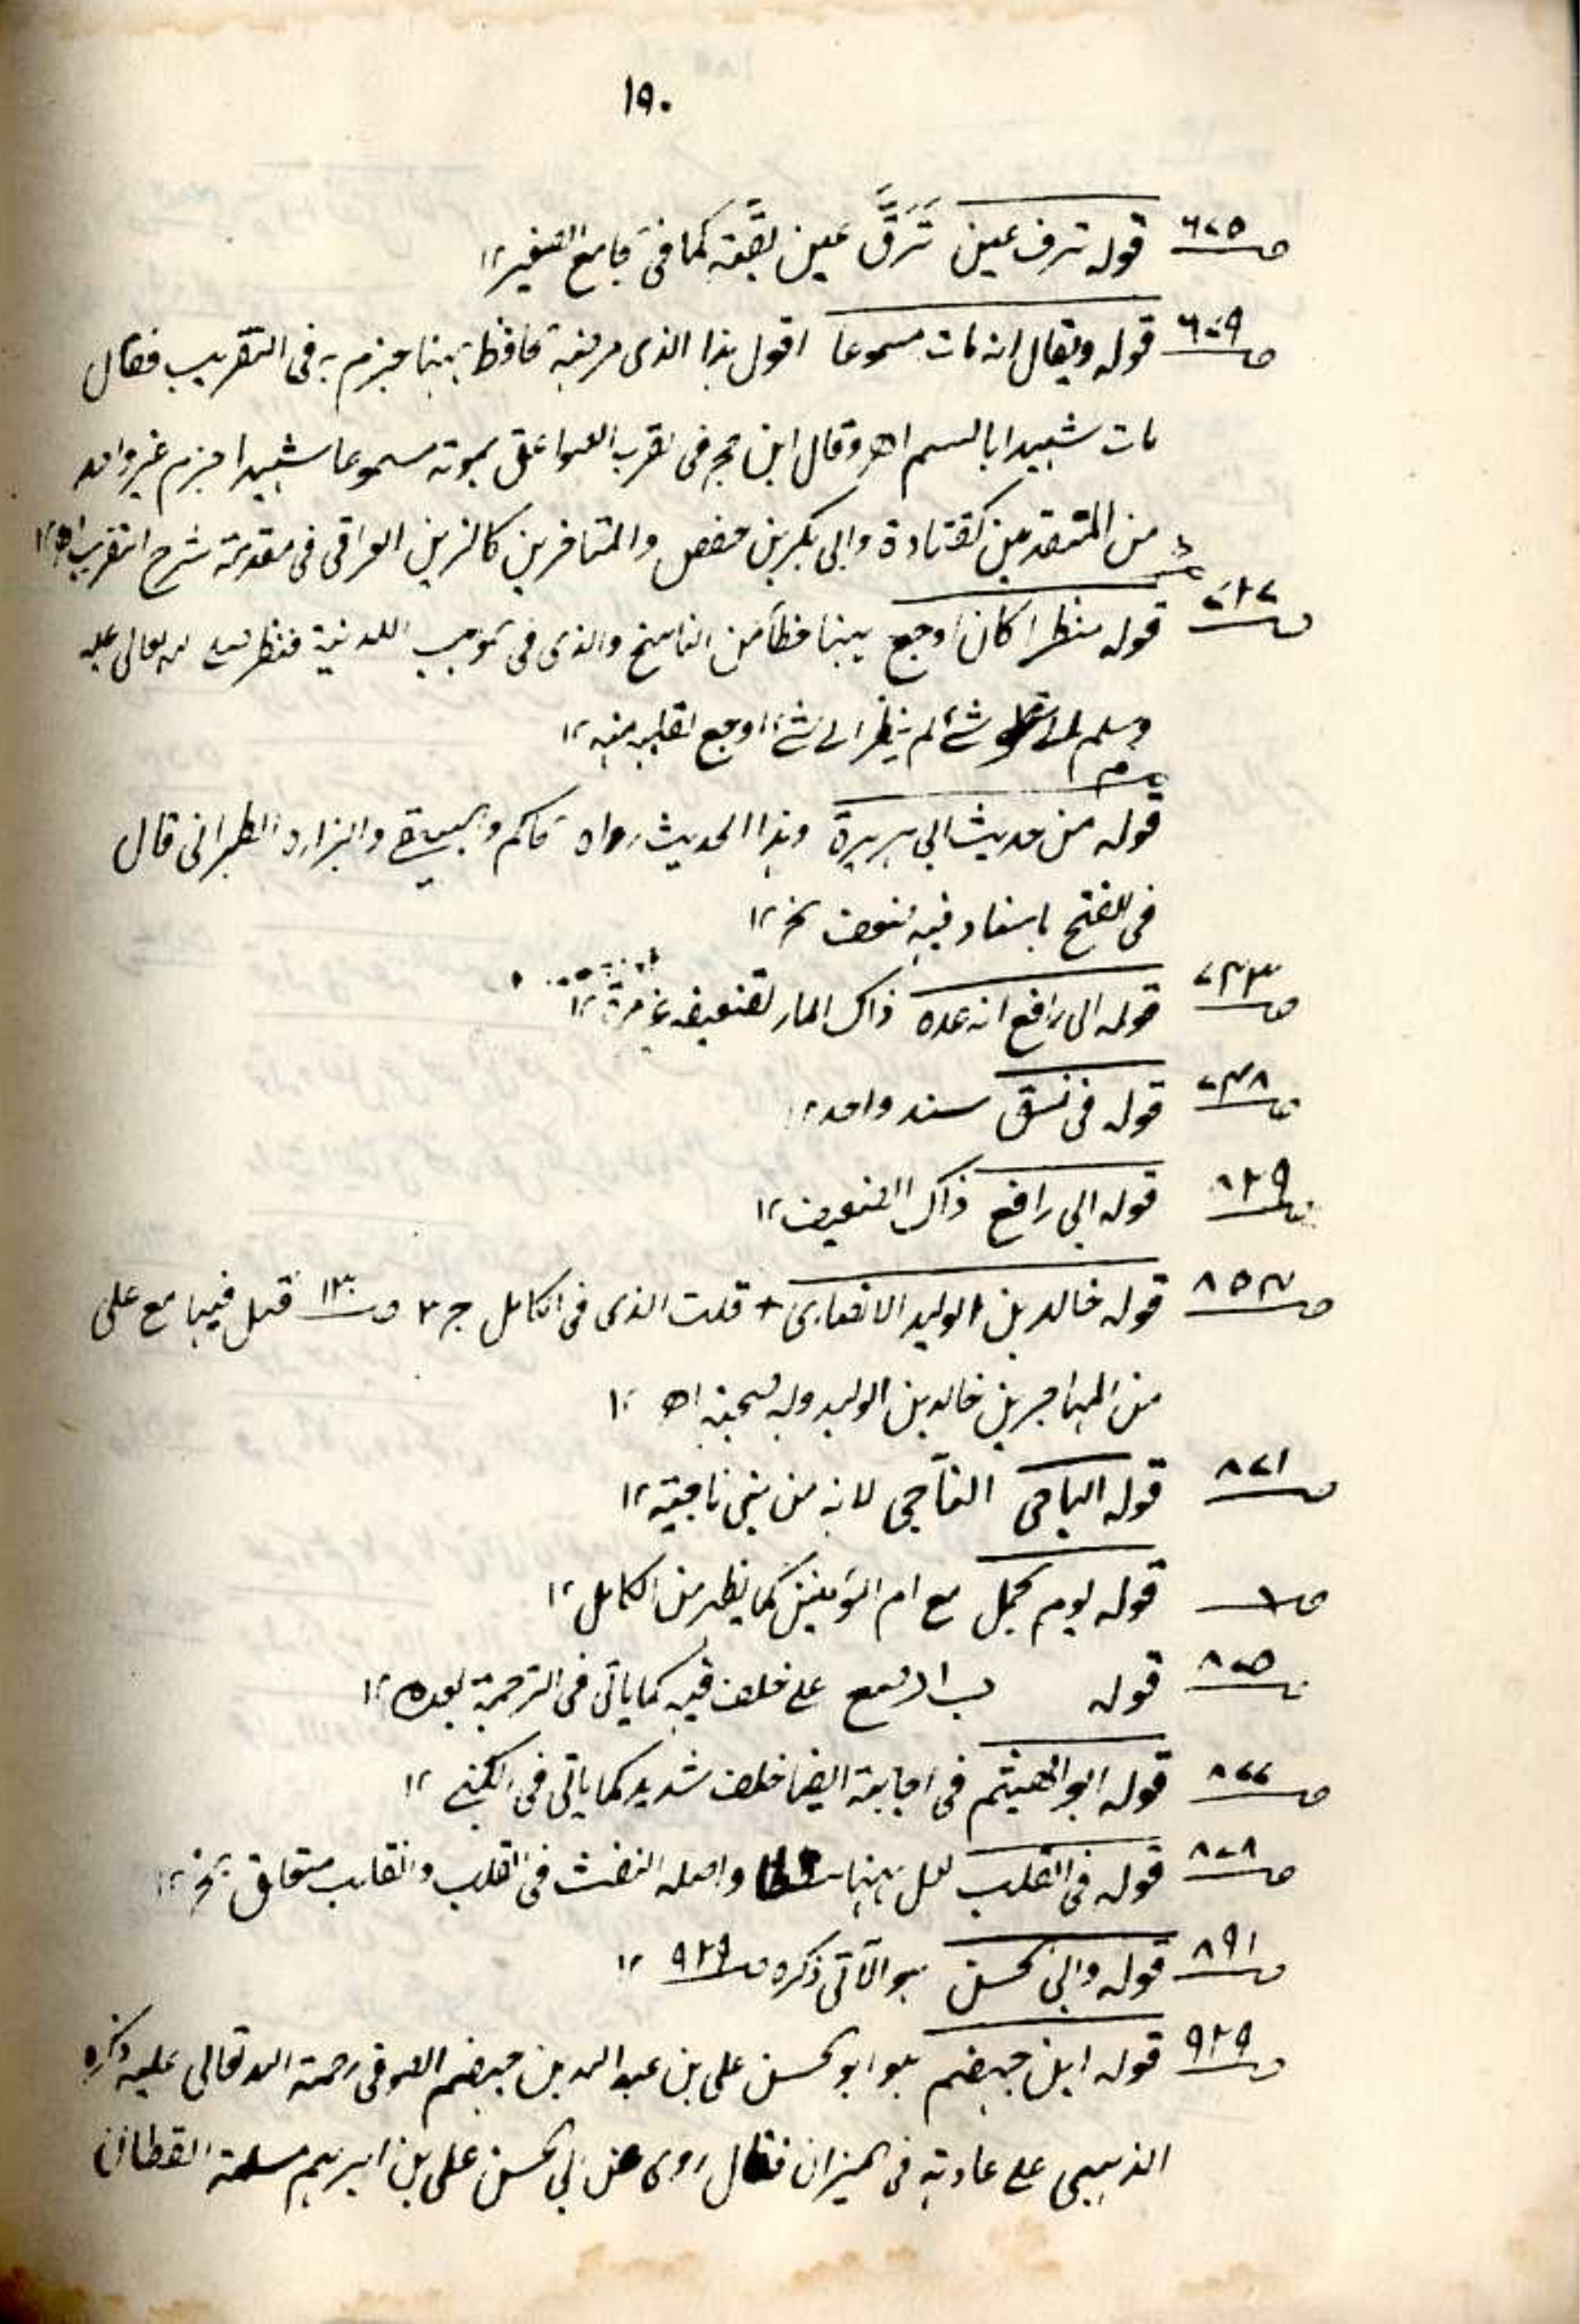 ١٩٠
ص ٦٧٥ قوله ترف عين تَرَقَّ عين بقّة كما فى جامع الصغير ١٢
ص ٦٧٩ قوله ويقال انه مات مسموعا اقول هذا الذى مرضه حافظ ههنا جزم به فى التقريب فقال
مات شهيدا بالسم اھ وقال ابن حجر فى الصواعق بموته مسموعا شهيدا جزم غير واحد
من المتقدمين كقتادة وابى بكر بن حفص والمتاخرين كالزين العراقى فى مقدمة شرح التقريب اھ ١٢
ص ٧٢٧ قوله منظرا كان اوجع ههنا خطأ من الناسخ والذى فى مواهب اللدنية فنظر صلى الله تعالى عليه
وسلم الى شئ لم ينظر الى شئ اوجع لقلبه منه ١٢
قوله من حديث ابى هريرة وهذا الحديث رواه حاكم والبيهقى والبزار والطبرانى قال
فى الفتح باسناد فيه ضعف الخ ١٢
ص ٧٤٣ قوله ابى رافع انه عده ذاك المار تضعيفه غير مرة ١٢
ص ٧٤٨ قوله فى نسق سند واحد ١٢
ص ٨٢٩ قوله ابى رافع ذاك الضعيف ١٢
ص ٨٥٤ قوله خالد بن الوليد الانصارى + قلت الذى فى الكامل ج ٣ ص ١٣٠ قتل فيها مع على
من المهاجرين خالد بن الوليد وله صحبة اھ ١٢
ص ٨٧١ قوله الباجى الناجى لانه من بنى ناجية ١٢
ص قوله يوم جمل مع ام المؤمنين كما يظهر من الكامل ١٢
ص ٨٧٥ قوله على خلاف فيه كما ياتى فى الترجمة بعده ١٢
ص ٨٧٧ قوله ابو الهيثم فى اجابة ايضا خلاف شديد كما ياتى فى الكنى ١٢
ص ٨٧٨ قوله فى القلب لعل ههنا سقطا واصله النفث فى القلب والقلب متعلق الخ ١٢
ص ٨٩١ قوله وابى الحسن هو الآتى ذكره ص ٩٢٩ ١٢
ص ٩٢٩ قوله ابن جهضم هو ابو الحسن على بن عبد الله بن جهضم الصوفى رحمة الله تعالى عليه ذكره
الذهبى على عادته فى الميزان فقال روى عن ابى الحسن على بن ابرهيم سلمة القطان